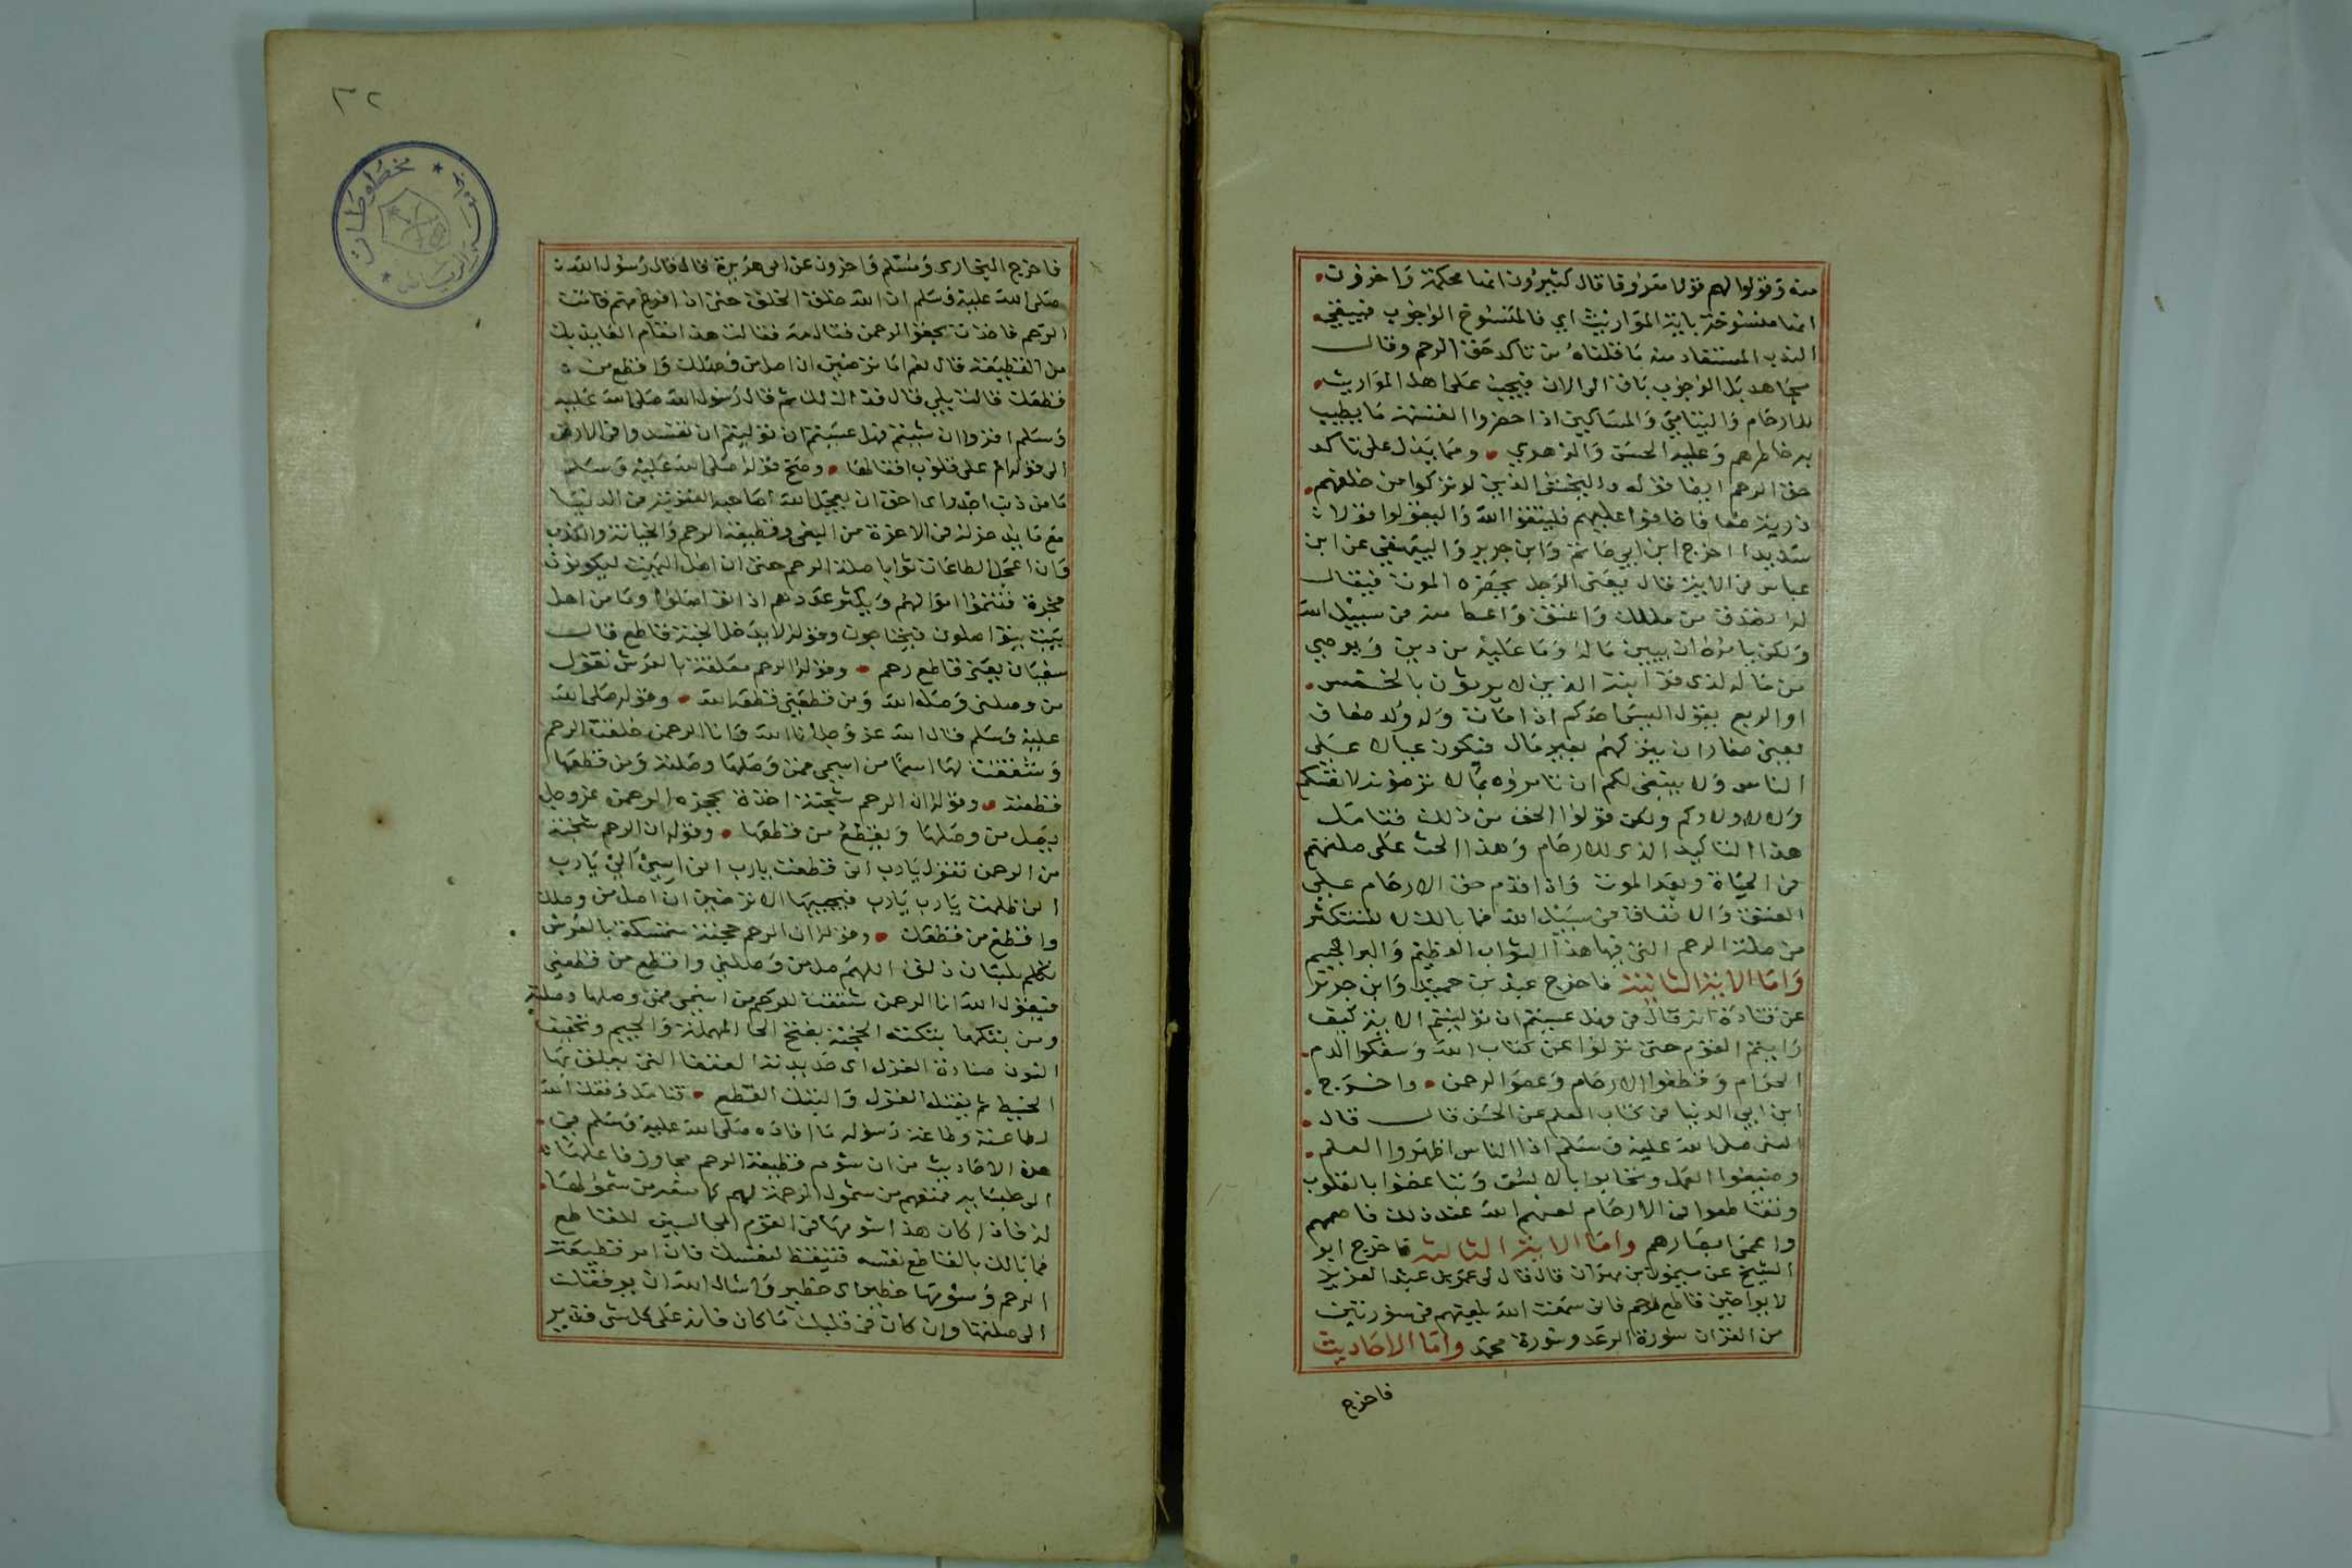 منه وقولوا لهم قولا معروفا قال كثيرون انها محكمة واخرون
انها منسوخة باية المواريث اي فالمنسوخ الوجوب فيبقى
الندب المستفاد منه ما قلناه من تاكد حق الرحم وقال
مجاهد بل الوجوب باق الى الان فيجب على اهل المواريث
للارحام واليتامى والمساكين اذا حضروا القسمة ما يطيب
به خاطرهم وعليه الحسن والزهري ومما يدل على تاكد
حق الرحم ايضا قوله وليخش الذين لو تركوا من خلفهم
ذرية ضعافا خافوا عليهم فليتقوا الله وليقولوا قولا
سديدا اخرج ابن ابي حاتم وابن جرير والبيهقي عن ابن
عباس في الاية قال يعني الرجل يحضره الموت فيقال
له تصدق من مالك واعتق واعط منه في سبيل الله
ولكن يامره ان يبين ماله وما عليه من دين ويوصي
من ماله لذي قرابته الذين لا يرثون بالخمس
او الربع يقول اليس احدكم اذا مات وله ولد ضعاف
يعني صغار ان يتركهم بغير مال فيكون عيالا على
الناس ولا ينبغي لكم ان تامروه بما لا ترضونه لانفسكم
ولا لاولادكم ولكن قولوا الحق من ذلك فتامل
هذا التاكيد الذي للارحام وهذا الحث على صلتهم
في الحياة وبعد الموت واذا قدم حق الارحام على
العتق والانفاق في سبيل الله فما بالك لا تستكثر
من صلة الرحم التي فيها هذا الثواب العظيم والبر الجسيم
واما الاية الثانية فاخرج عبد بن حميد وابن جرير
عن قتادة انه قال في فهل عسيتم ان توليتم الاية كيف
رايتم القوم حتى تولوا عن كتاب الله وسفكوا الدم
الحرام وقطعوا الارحام وعصوا الرحمن واخرج
ابن ابي الدنيا في كتاب العلم عن الحسن قال قال
النبي صلى الله عليه وسلم اذا الناس اظهروا العلم
وضيعوا العمل وتحابوا بالالسن وتباغضوا بالقلوب
وتقاطعوا في الارحام لعنهم الله عند ذلك فاصمهم
واعمى ابصارهم واما الاية الثالثة فاخرج ابو
الشيخ عن ميمون بن مهران قال قال لي عمر بن عبد العزيز
لا تواخين قاطع رحم فاني سمعت الله يلعنهم في سورتين
من القران سورة الرعد وسورة محمد واما الاحاديث
فاخرج
٣٢
مخطوطات
الرياض
فاخرج البخاري ومسلم واخرون عن ابي هريرة قال قال رسول الله
صلى الله عليه وسلم ان الله خلق الخلق حتى اذا فرغ منهم قامت
الرحم فاخذت بحقو الرحمن فقال مه فقالت هذا مقام العايذ بك
من القطيعة قال نعم اما ترضين ان اصل من وصلك واقطع من
قطعك قالت بلى قال فذلك لك ثم قال رسول الله صلى الله عليه
وسلم اقروا ان شيتم فهل عسيتم ان توليتم ان تفسدوا في الارض
الى قوله ام على قلوب اقفالها وصح قوله صلى الله عليه وسلم
ما من ذنب اجدر اي احق ان يعجل الله لصاحبه العقوبة في الدنيا
مع ما يدخر له في الاخرة من البغي وقطيعة الرحم والخيانة والكذب
وان اعجل الطاعات ثوابا صلة الرحم حتى ان اهل البيت ليكونون
فجرة فتنموا اموالهم ويكثر عددهم اذا تواصلوا وما من اهل
بيت يتواصلون فيحتاجون وقوله لا يدخل الجنة قاطع قال
سفيان يعني قاطع رحم وقوله الرحم معلقة بالعرش تقول
من وصلني وصله الله ومن قطعني قطعه الله وقوله صلى الله
عليه وسلم قال الله عز وجل انا الله وانا الرحمن خلقت الرحم
وشققت لها اسما من اسمي فمن وصلها وصلته ومن قطعها
قطعته وقوله ان الرحم شجنة اخذة بحجزة الرحمن عز وجل
يصل من وصلها ويقطع من قطعها وقوله ان الرحم شجنة
من الرحمن تقول يا رب اني قطعت يا رب اني اسي الي يا رب
اني ظلمت يا رب يا رب فيجيبها الا ترضين ان اصل من وصلك
واقطع من قطعك وقوله ان الرحم حجنة متمسكة بالعرش
تكلم بلسان ذلق اللهم صل من وصلني واقطع من قطعني
فيقول الله انا الرحمن شققت للرحم من اسمي فمن وصلها وصلته
ومن بتكها بتكته الحجنة بفتح الحا المهملة والجيم وتخفيف
النون صنارة الغزل اي حديدته العقفا التي يعلق بها
الخيط ثم يفتل الغزل والبتك القطع فتامل وفقك الله
لطاعته وطاعة رسوله ما افاده صلى الله عليه وسلم في
هذه الاحاديث من ان شوم قطيعة الرحم يجاوز فاعلها
الى جلسايه فمنعهم من شمول الرحمة لهم كما منعه من شمولها
له فاذا كان هذا شومها في القوم المجالسين للقاطع
فما بالك بالقاطع نفسه فتيقظ لنفسك فان امر قطيعة
الرحم وشومها خطير اي خطير واسال الله ان يوفقك
الى صلتها وان كان في قلبك ما كان فانه على كل شي قدير